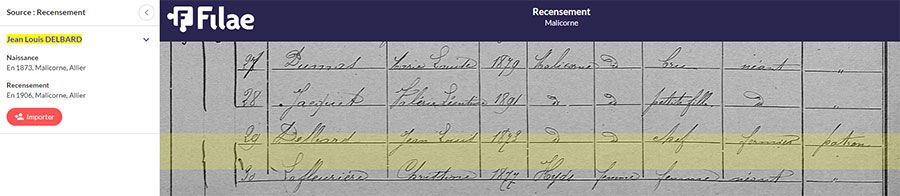 Source : Recensement
Jean Louis DELBARD
Naissance
En 1873, Malicorne, Allier
Recensement
En 1906, Malicorne, Allier
Importer
Filae
Recensement
Malicorne
27 Dumas Marie Louise 1879 Malicorne d bru néant "
28 Jacquet Valérie Léontine 1891 d d petite fille d "
29 Delbard Jean Louis 1873 d d chef fermier patron
30 Lafleurière Christine 1877 Hyds femme néant "